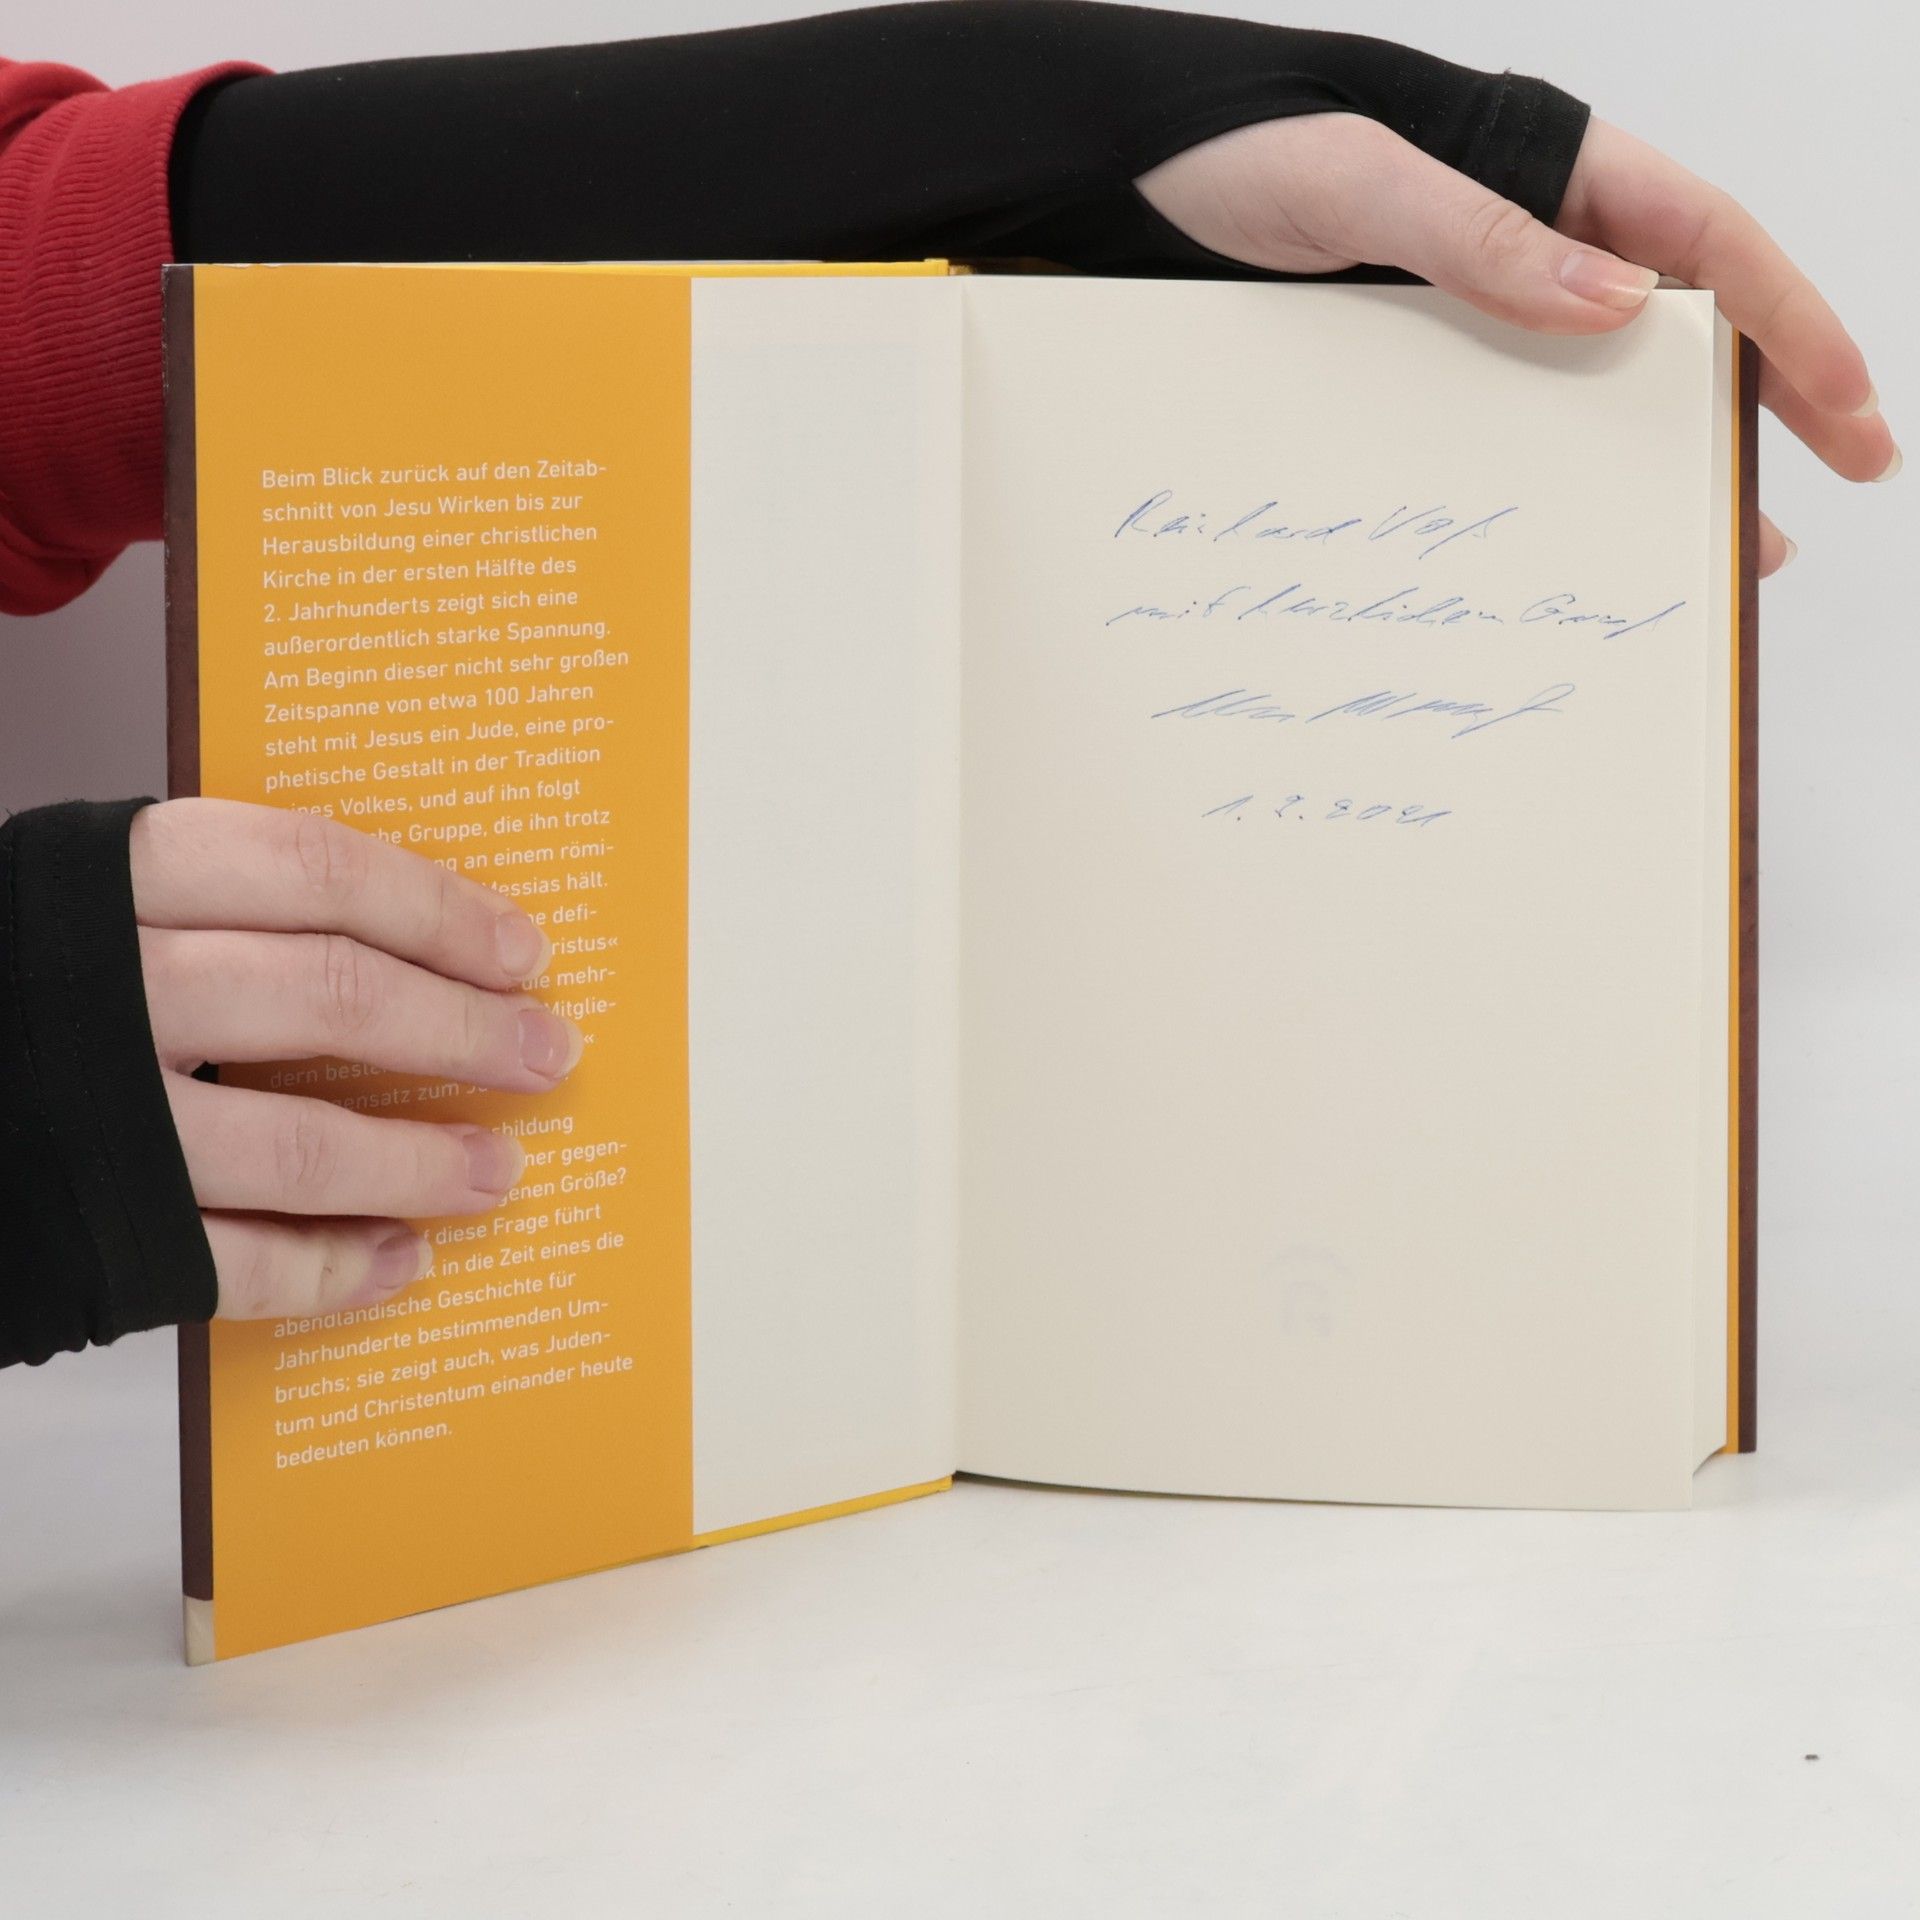 Beim Blick zurück auf den Zeitab-
schnitt von Jesu Wirken bis zur
Herausbildung einer christlichen
Kirche in der ersten Hälfte des
2. Jahrhunderts zeigt sich eine
außerordentlich starke Spannung.
Am Beginn dieser nicht sehr großen
Zeitspanne von etwa 100 Jahren
steht mit Jesus ein Jude, eine pro-
phetische Gestalt in der Tradition
Volkes, und auf ihn folgt
Gruppe, die ihn trotz
an einem römi-
Messias hält.
defi-
ristus«
die mehr-
Mitglie-
«
dern
zum
bildung
ner gegen-
genen Größe?
diese Frage führt
in die Zeit eines die
abendländische Geschichte für
Jahrhunderte bestimmenden Um-
bruchs; sie zeigt auch, was Juden-
tum und Christentum einander heute
bedeuten können.
Reinhard Voß
mit herzlichem Gruß
1. 2. 2021